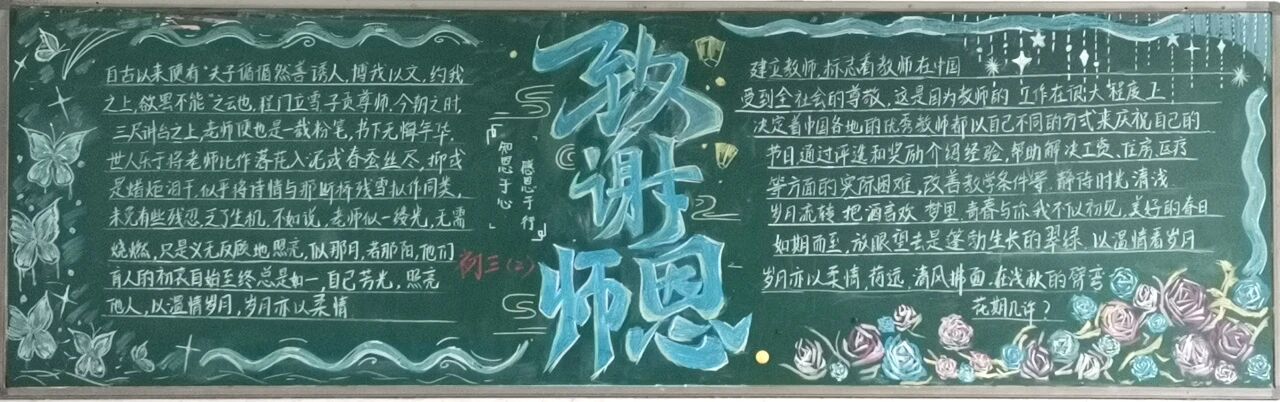 自古以来便有"夫子循循然善诱人,博我以文,约我
之上,欲罢不能"之云也,程门立雪子贡尊师,今朝之时,
三尺讲台之上,老师便也是一截粉笔,书下无悔年华.
世人乐于将老师比作落花入泥或春蚕丝尽,抑或
是蜡炬泪干,似乎将诗情与那断桥残雪拟作同类,
未免有些残忍乏了生机,不如说,老师似一缕光,无需
烧燃,只是义无反顾地照亮,似那月,若那阳,他们
育人的初衷自始至终总是如一,自己芳光,照亮
他人,以温情岁月,岁月亦以柔情
初三(二)
「知恩于心
感恩于行」
致
谢
师恩
建立教师,标志着教师在中国
受到全社会的尊敬,这是因为教师的工作在很大程度上
决定着中国各地的优秀教师都以自己不同的方式来庆祝自己的
节日通过评选和奖励介绍经验,帮助解决工资、住房、医疗
等方面的实际困难,改善教学条件等.静待时光清浅
岁月流转把酒言欢梦里.青春与你我不似初见,美好的春日
如期而至,放眼望去是蓬勃生长的翠绿.以温情看岁月
岁月亦以柔情,荷远,清风拂面.在浅秋的臂弯
花期几许?